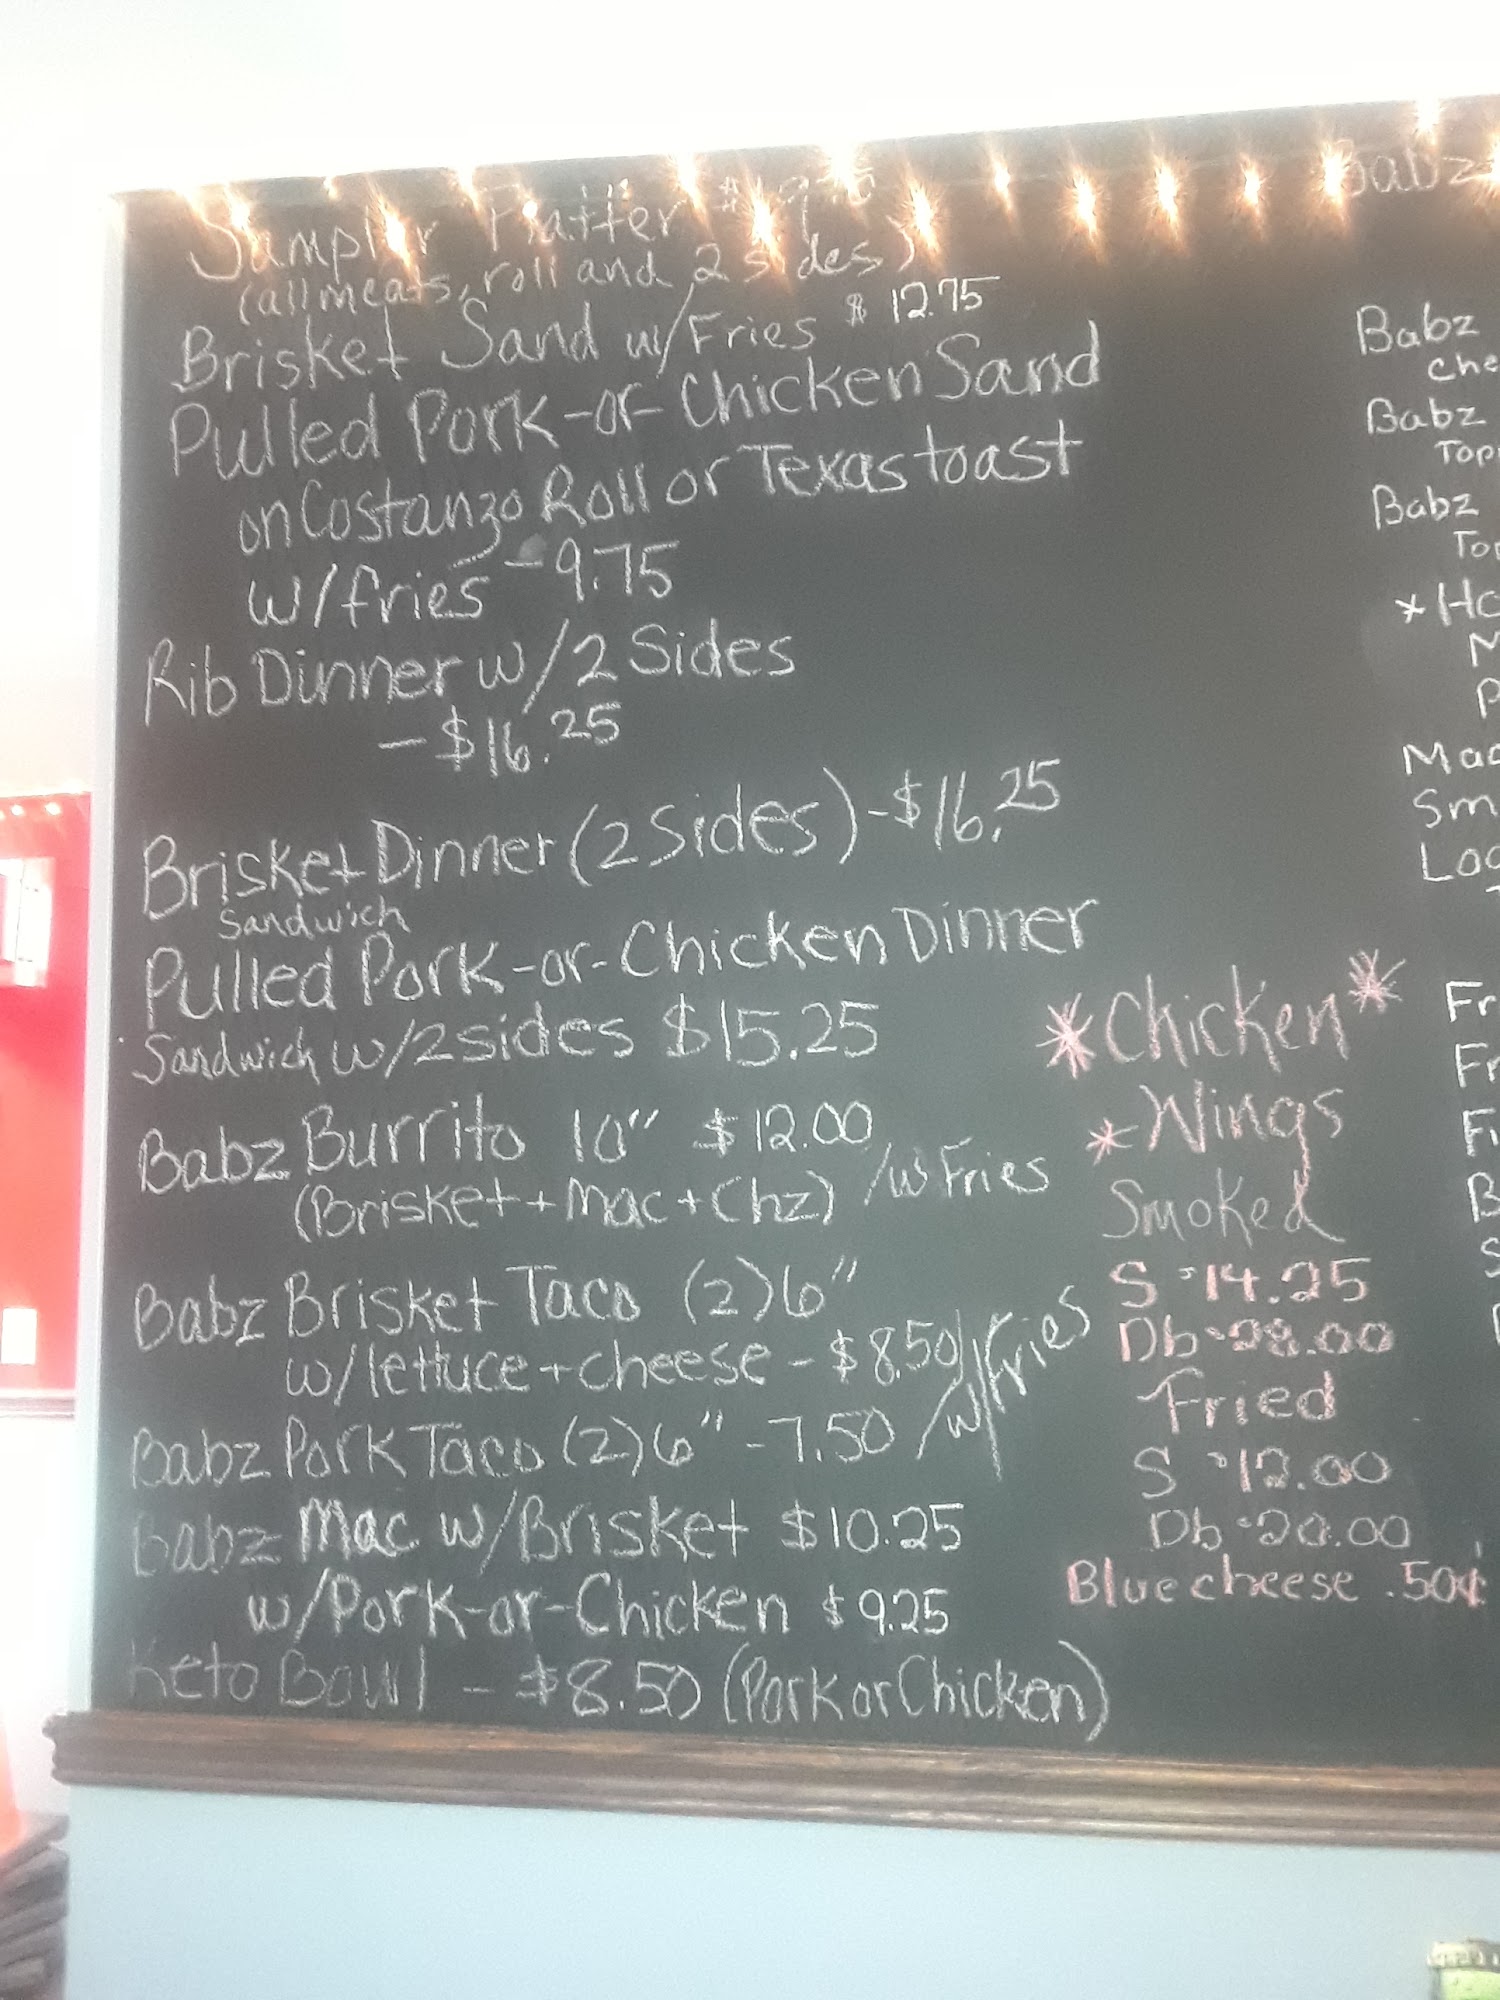 Sampler Platter
(all meats, roll and 2 sides)
Brisket Sand w/Fries $12.75
Pulled Pork-or-Chicken Sand
on Costanzo Roll or Texas toast
w/fries - 9.75
Rib Dinner w/2 Sides
- $16.25
Brisket Dinner (2 Sides) - $16.25
Sandwich
Pulled Pork-or-Chicken Dinner
Sandwich w/2 sides $15.25
Babz Burrito 10" $12.00
(Brisket + Mac + Chz) /w Fries
Babz Brisket Taco (2) 6"
w/lettuce + cheese - $8.50/
Babz Pork Taco (2) 6" - 7.50 /w/Fries
Babz Mac w/Brisket $10.25
w/Pork-or-Chicken $9.25
Keto Bowl - $8.50 (Pork or Chicken)
*Chicken*
*Wings
Smoked
S - 14.25
Db - 28.00
Fried
S - 12.00
Db - 20.00
Blue cheese .50¢
Babz
Babz
Babz
Babz